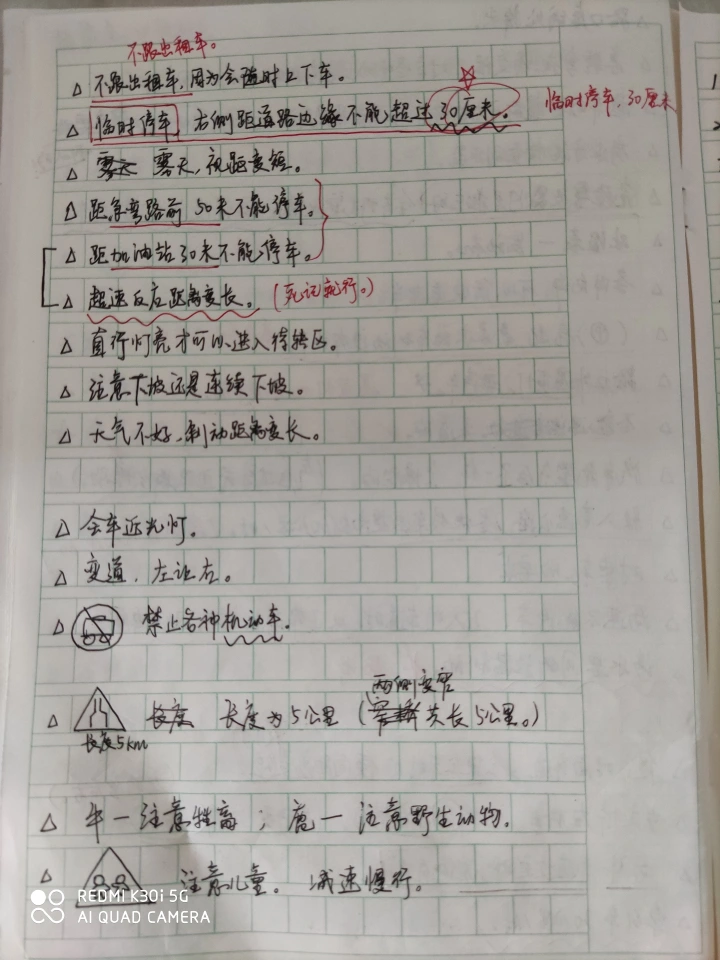 不跟出租车。
△ 不跟出租车,因为会随时上下车。
△ 临时停车,右侧距道路边缘不能超过30厘米。
临时停车,30厘米
△ 雾天 雾天,视距变短。
△ 距急弯路前 50米不能停车。
△ 距加油站30米不能停车。
△ 超速反应距离变长。(死记就行。)
△ 直行灯亮才可以进入待转区。
△ 注意下坡还是连续下坡。
△ 天气不好,制动距离变长。
△ 会车近光灯。
△ 变道,左让右。
△ 禁止各种机动车。
两侧变窄
△ 长度 长度为5公里(窄 共长5公里。)
长度5km
△ 牛一注意牲畜;鹿一注意野生动物。
△ 注意儿童。减速慢行。
REDMI K30i 5G
AI QUAD CAMERA